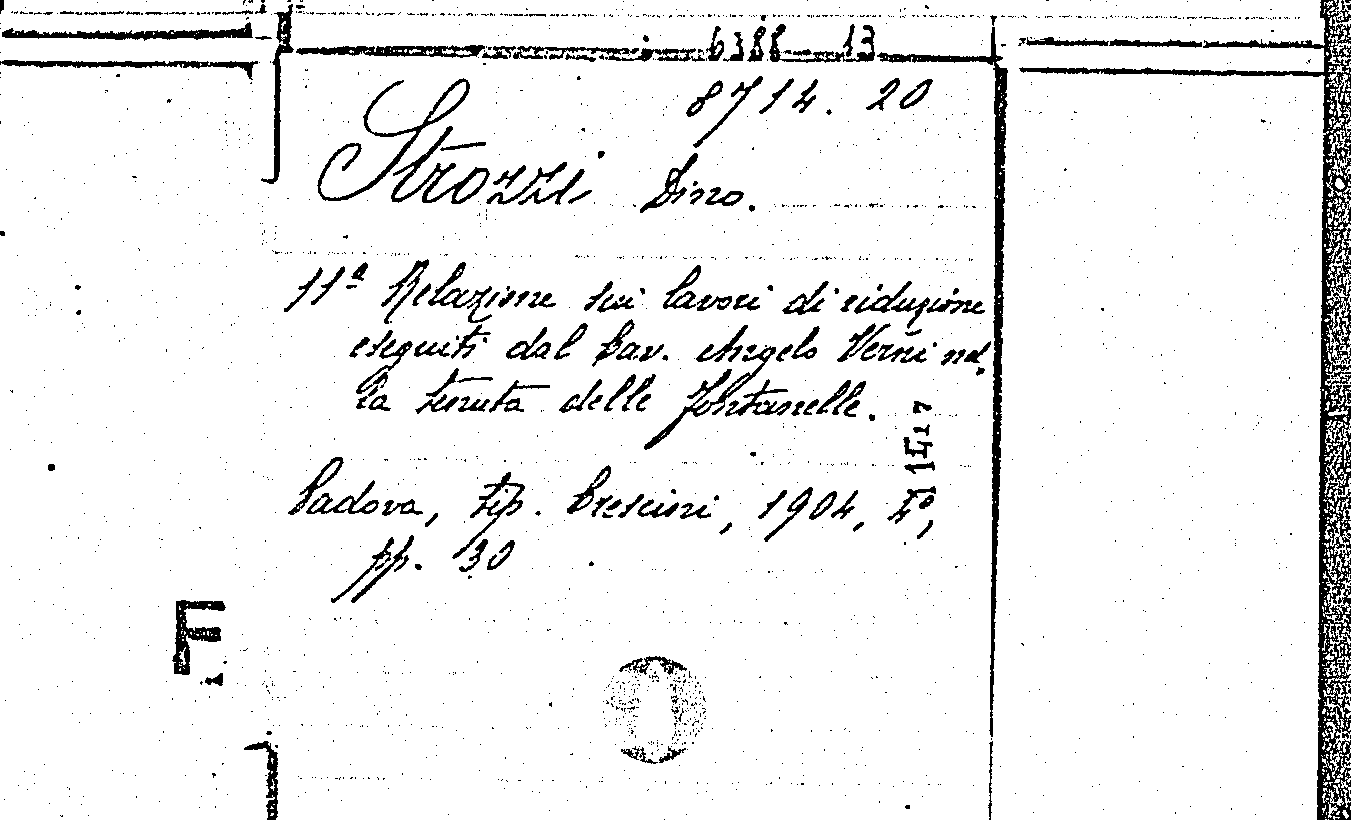 6388 13
8714. 20
Strozzi Dino.
11ª Relazione sui lavori di riduzione
eseguiti dal Cav. Angelo Verni nel,
la tenuta delle Fontanelle.
Padova, tip. Crescini, 1904, 4º,
pp. 30
F